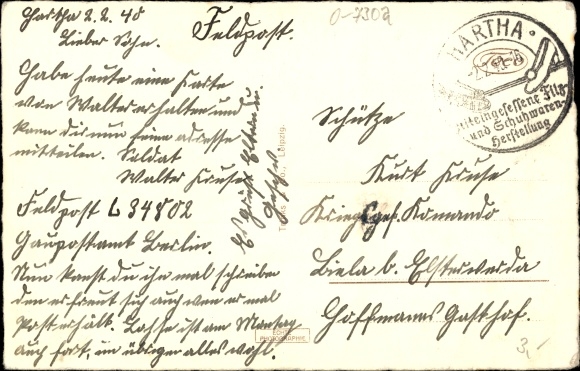 Hartha 2.2.40
Lieber Sohn.
Habe heute eine Karte
von Walter erhalten und
kann dir nun seine adresse
mitteilen. Soldat
Walter Kruse
Feldpost L 34802
Gaupostamt Berlin.
Nun kanst du ihm mal schreiben
den er freut sich auch wen er mal
Post erhält. Lothe ist am Montag
auch fort, im übrigen alles wohl.
Es grüßt Eltern u.
Gesch.
Feldpost.
0-7302
HARTHA
Alteingesessene Filz-
und Schuhwaren-
Herstellung
Schütze
Kurt Kruse
Kriegsgef. Komando
Biela b. Elsterwerda
Hoffmanns Gasthof.
Leipzig.
ECHTE
PHOTOGRAPHIE
3,